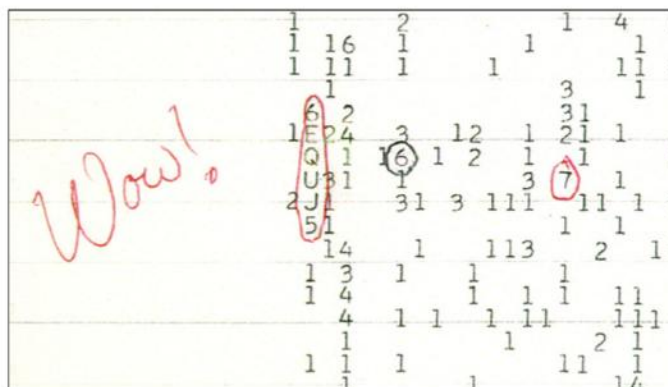 1 2 1 4
1 16 1 1 1
1 11 1 1 11
1 3 1
6 2 31
1 E24 3 12 1 21 1
Q 1 16 1 2 1 1
U31 1 3 7 1
2 J1 31 3 111 11 1
51 1 1
14 1 113 2 1
1 3 1 1 1
1 4 1 1 1 11
4 1 1 1 11 111
1 1 2 1
1 1 1 11 1
1 1 14
Wow!